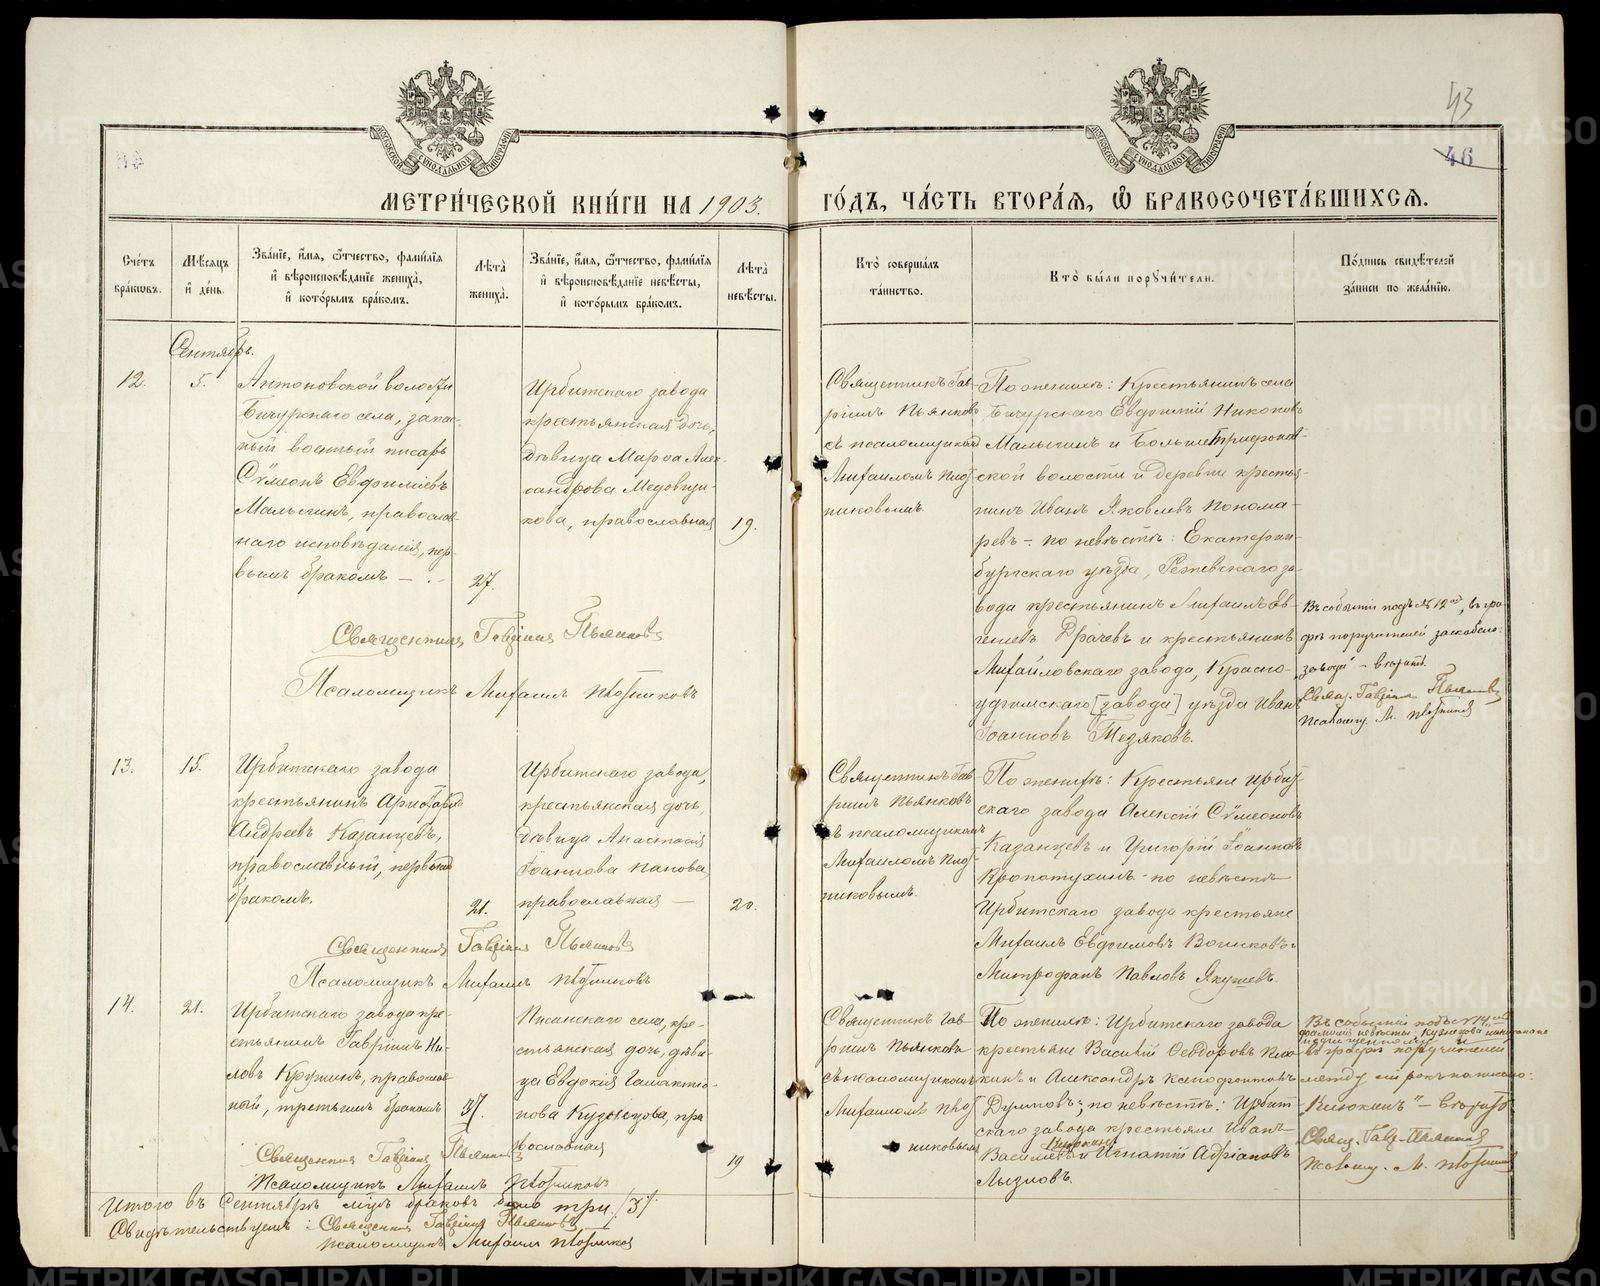 43
46
МЕТРИ́ЧЕСКОЙ КНИ́ГИ НА 1903.
ГО́ДЪ, ЧА́СТЬ ВТОРА́Я, Ѽ БРАКОСОЧЕТА́ВШИХСЯ.
Сче́тъ бра́кѡвъ.
Мѣ́сяцъ и де́нь.
Зва́нїе, и҆́мя, ѻ҆́тчество, фами́лїя
и҆ вѣроисповѣ́данїе жениха̀,
и҆ кото́рымъ бра́комъ.
Лѣ́та жениха̀.
Зва́нїе, и҆́мя, ѻ҆́тчество, фами́лїя
и҆ вѣроисповѣ́данїе невѣ́сты,
и҆ кото́рымъ бра́комъ.
Лѣ́та невѣ́сты.
Кто̀ соверша́лъ
та́инство.
Кто̀ бы́ли поручи́тели.
По́дпись свидѣ́телей
за́писи по жела́нїю.
Сентябрь.
12.
5.
Антоновской волости
Бичурскаго села, запас-
ный военный писарь
Сѵмеонъ Евфиміевъ
Малыгинъ, православ-
наго исповѣданія, пер-
вымъ бракомъ
27.
Ирбитскаго завода
крестьянская дочь,
дѣвица Марѳа Алек-
сандрова Медовщи-
кова, православная
19.
Священникъ Гав-
ріилъ Пьянковъ
съ псаломщикомъ
Михаиломъ Плот-
никовымъ.
По женихѣ: Крестьянинъ села
Бичурскаго Евфимій Никоновъ
Малыгинъ и Больше Трифонов-
ской волости и деревни крестья-
нинъ Иванъ Яковлевъ Понома-
ревъ. по невѣстѣ: Екатерин-
бургскаго уѣзда, Режевскаго за-
вода крестьянинъ Михаилъ Ев-
геніевъ Драчевъ и крестьянинъ
Михайловскаго завода, Красно-
уфимскаго [завода] уѣзда Иванъ
Іоанновъ Тедяковъ.
Въ событіи подъ № 12ым, въ гра-
фѣ поручителей заскоблено:
"завода" - вѣрить.
Свящ. Гавріилъ Пьянковъ
Псаломщ. М. Плотниковъ
Священникъ Гавріилъ Пьянковъ
Псаломщикъ Михаилъ Плотниковъ
13.
15.
Ирбитскаго завода
крестьянинъ Аристархъ
Андреевъ Казанцевъ,
православный, первымъ
бракомъ.
21.
Ирбитскаго завода,
крестьянская дочь,
дѣвица Анастасія
Іоаннова Панова
православная
20.
Священникъ Гав-
ріилъ Пьянковъ
съ псаломщикомъ
Михаиломъ Плот-
никовымъ.
По женихѣ: Крестьяне Ирбит-
скаго завода Алексій Сѵмеоновъ
Казанцевъ и Григорій Іоанновъ
Кропотухинъ - по невѣстѣ
Ирбитскаго завода крестьяне
Михаилъ Евфимовъ Воинковъ и
Митрофанъ Павловъ Якушевъ.
Священникъ Гавріилъ Пьянковъ
Псаломщикъ Михаилъ Плотниковъ
14.
21.
Ирбитскаго завода кре-
стьянинъ Гавріилъ Ни-
ловъ Кружинъ, православ-
ный, третьимъ бракомъ
37.
Писанскаго села, кре-
стьянская дочь, дѣви-
ца Евдокія Галактіо-
нова Кузнецова, пра
вославная
19
Священникъ Гав-
ріилъ Пьянковъ
съ псаломщикомъ
Михаиломъ Плот
никовымъ
По женихѣ: Ирбитскаго завода
крестьяне Василій Ѳеодоровъ
и Александръ Ксенофонтовъ
Думновъ; по невѣстѣ: Ирбит
скаго завода крестьяне Иванъ
Васильевъ и Игнатій Адріановъ
Лызловъ.
Въ событіи подъ № 14ым
въ графѣ поручителей
между строкъ написано:
вѣрить
Свящ. Гавр. Пьянковъ
Псаломщ. М. Плотниковъ
Священникъ Гавріилъ Пьянковъ
Псаломщикъ Михаилъ Плотниковъ
Итого въ Сентябрѣ м-цѣ браковъ было три /3/.
Свидѣтельствуемъ: Священникъ Гавріилъ Пьянковъ
Псаломщикъ Михаилъ Плотниковъ
METRIKI.GASO-URAL.RU